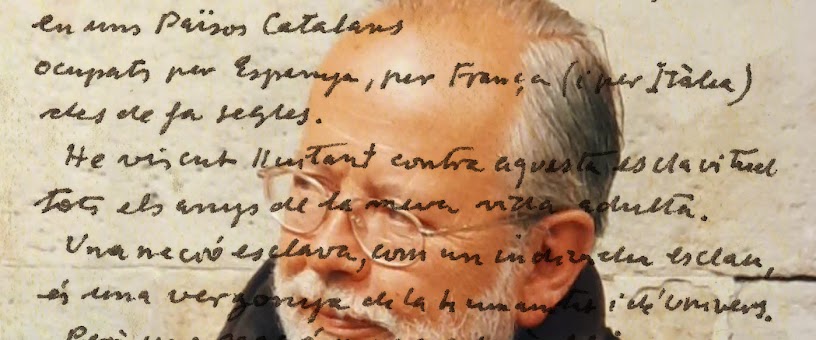 en uns Països Catalans
ocupats per Espanya, per França (i per Itàlia)
des de fa segles.
He viscut lluitant contra aquesta esclavitud
tots els anys de la meva vida adulta.
Una nació esclava, com un individu esclau,
és una vergonya de la humanitat i de l'univers.
Però una nació